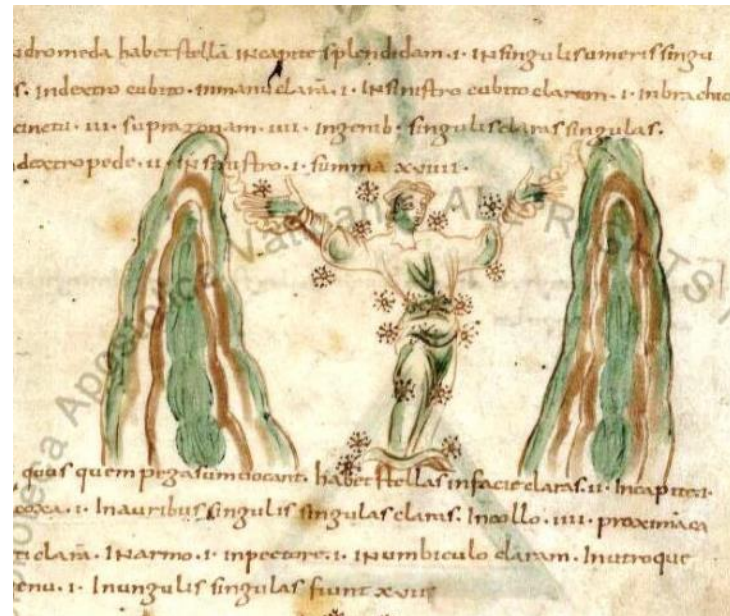 dromeda habet stellā in capite splendidam · i · in singulis umeris singu
s · in dextro cubito · in manu clarā · i · in sinistro cubito claram · i · in brachio
cinctu · iii · supra zonam · iiii · in genib · singulis claras singulas ·
dextro pede · ii · in sinistro · i · summa xviiii ·
quus quem pegasum vocant · habet stellas in facie claras · ii · in capite · i ·
coxa · i · in auribus singulis singulas claras · in collo · iiii · proxima ca
ti clarā · in armo · i · in pectore · i · in umbiculo claram · in utroque
enu · i · in ungulis singulas fiunt xviii
Biblioteca Apostolica Vaticana ALL RIGHTS